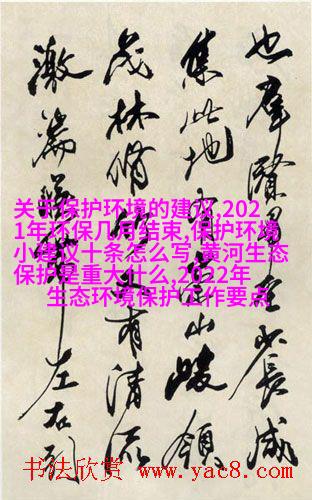 也羣賢畢至少長咸
集此地有崇山峻領
茂林脩竹又有清流
激湍暎帶左右引
关于保护环境的建议,202
1年环保几月结束,保护环境
小建议十条怎么写,黄河生态
保护是重大什么,2022年
生态环境保护工作要点
书法欣赏 www.yac8.com